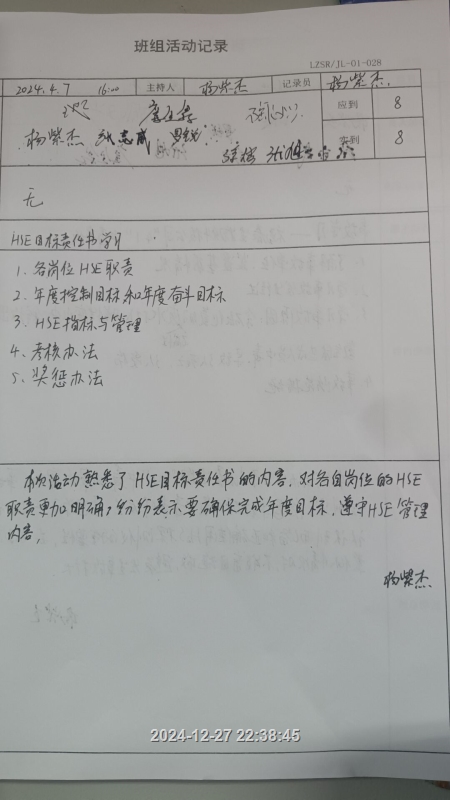 班组活动记录
LZSR/JL-01-028
2024.4.7 16:00 主持人 杨紫杰 记录员 杨紫杰
应到 8
杨紫杰 张志威
实到 8
无
HSE目标责任书学习
1、各岗位HSE职责
2、年度控制目标和年度奋斗目标
3、HSE指标与管理
4、考核办法
5、奖惩办法
本次活动熟悉了HSE目标责任书的内容,对各自岗位的HSE
职责更加明确,纷纷表示要确保完成年度目标,遵守HSE管理
内容,
杨紫杰
2024-12-27 22:38:45